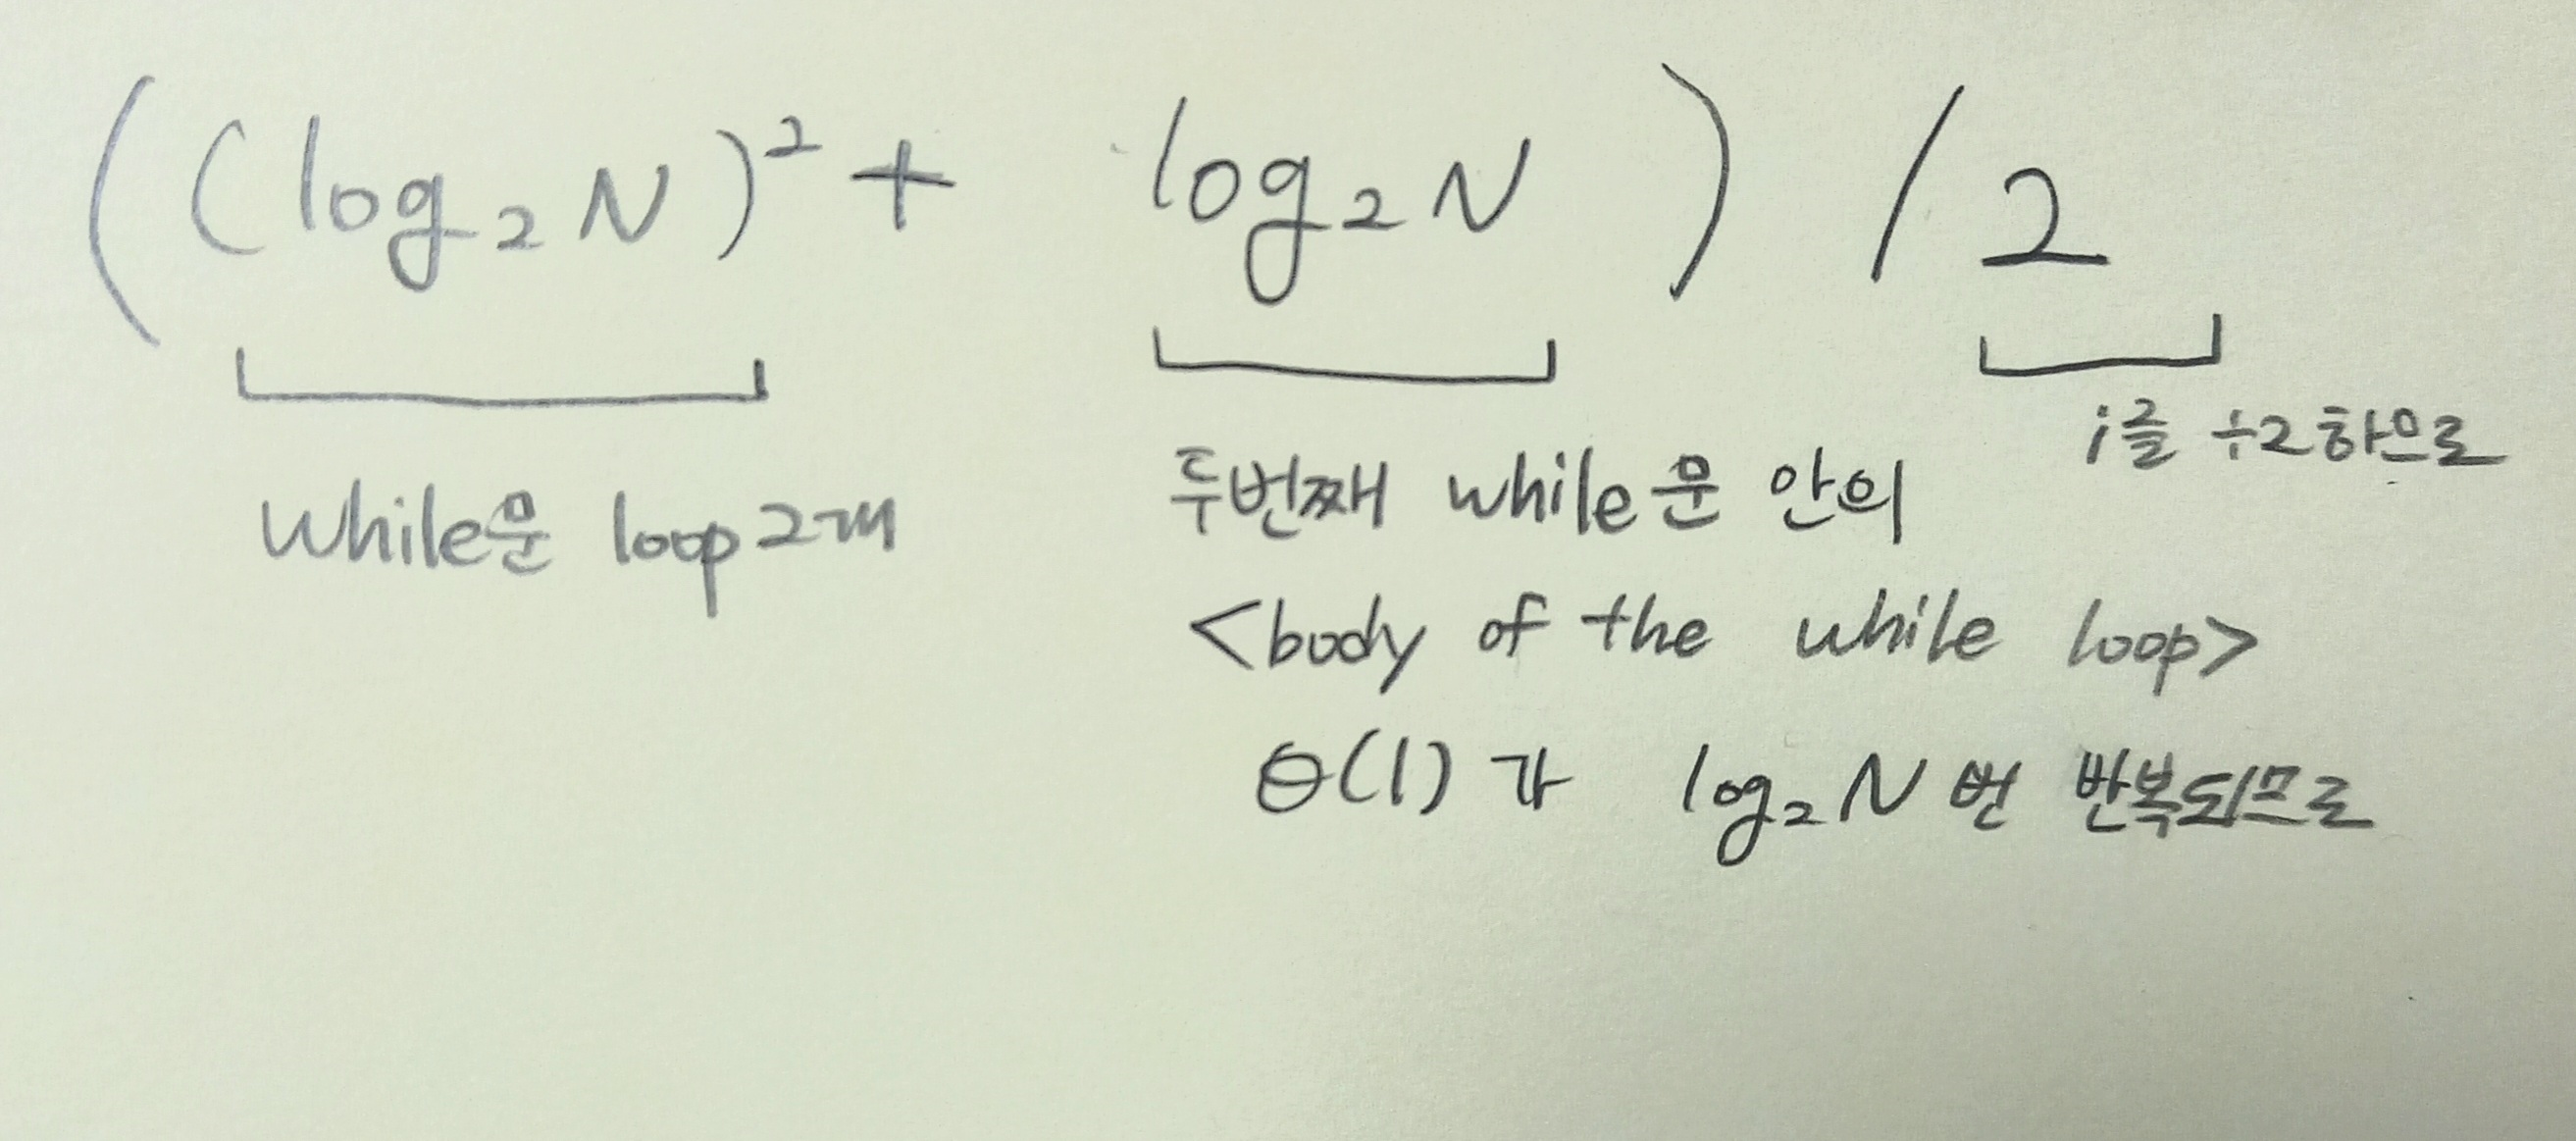 ((log₂N)² + log₂N) / 2
i를 ÷2하으로
while문 loop 2개
두번째 while문 안의
<body of the while loop>
θ(1)가 log₂N번 반복되므로